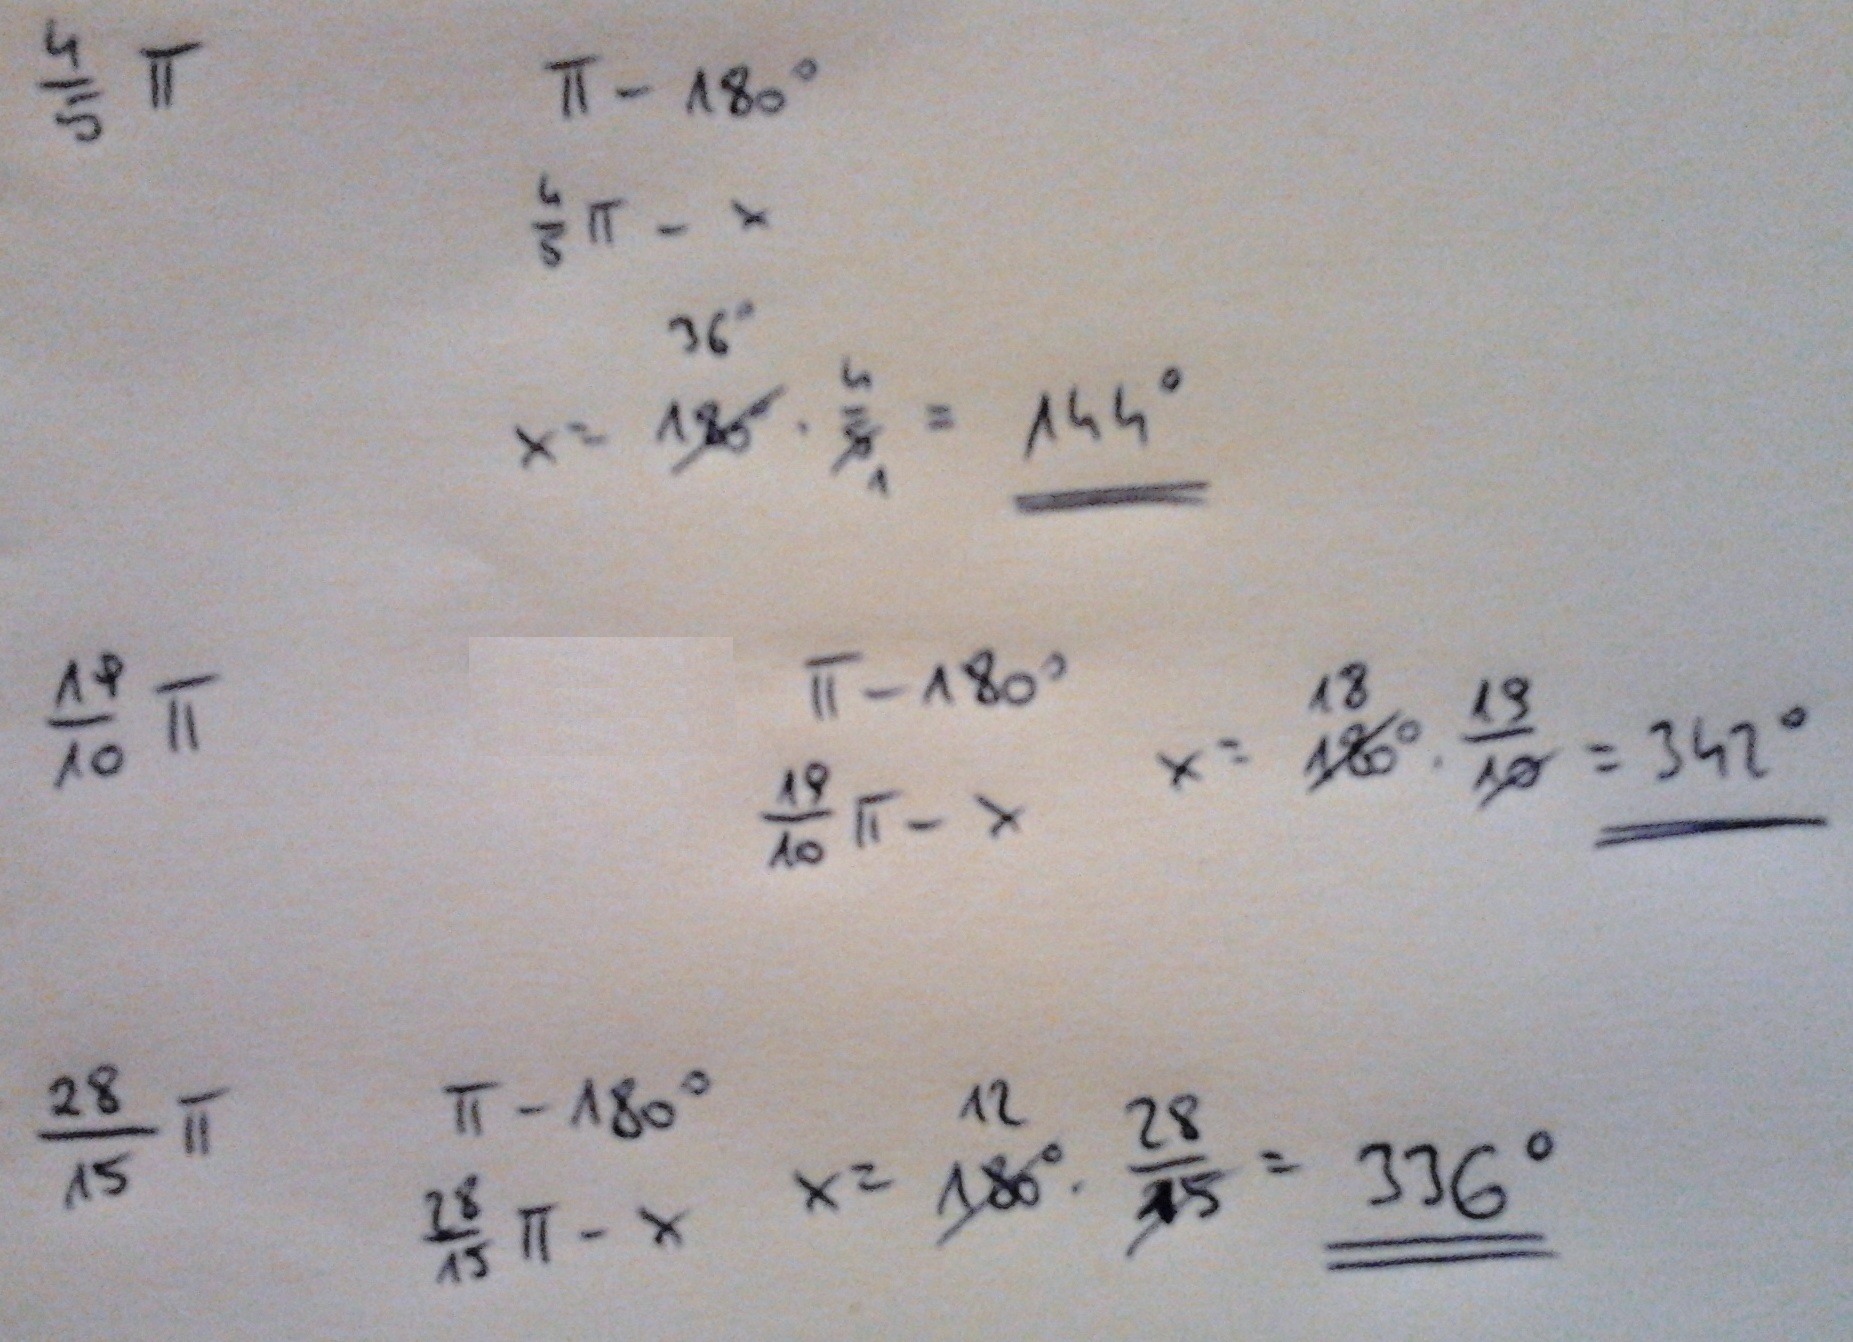 4/5 π
π - 180°
4/5 π - x
36°
x = 180° · 4/5 = 144°
1
19/10 π
π - 180°
19/10 π - x
18
x = 180° · 19/10 = 342°
28/15 π
π - 180°
28/15 π - x
12
x = 180° · 28/15 = 336°